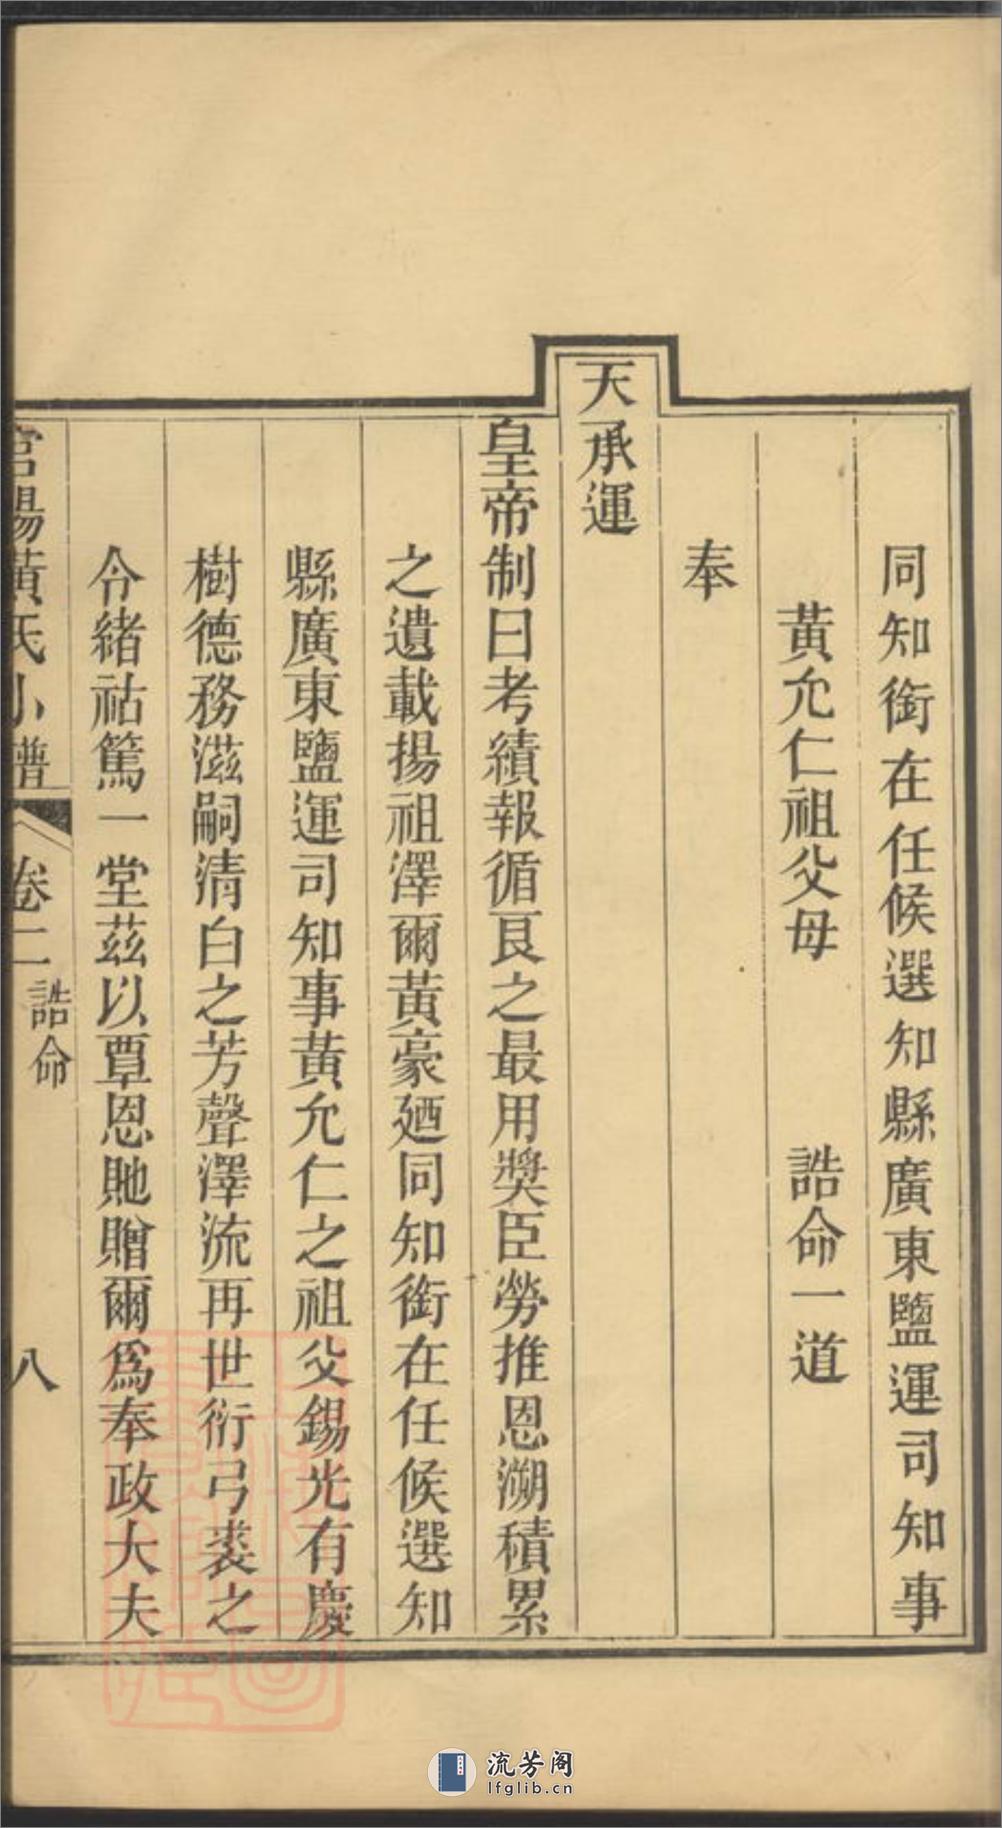 同知銜在任候選知縣廣東鹽運司知事
黃允仁祖父母　誥命一道
奉
天承運
皇帝制曰考績報循良之最用獎臣勞推恩溯積累
之遺載揚祖澤爾黃豪廼同知銜在任候選知
縣廣東鹽運司知事黃允仁之祖父錫光有慶
樹德務滋嗣清白之芳聲澤流再世衍弓裘之
令緒祜篤一堂茲以覃恩貤贈爾爲奉政大夫
黃氏小譜　卷二　誥命　八
流芳阁
lfglib.cn